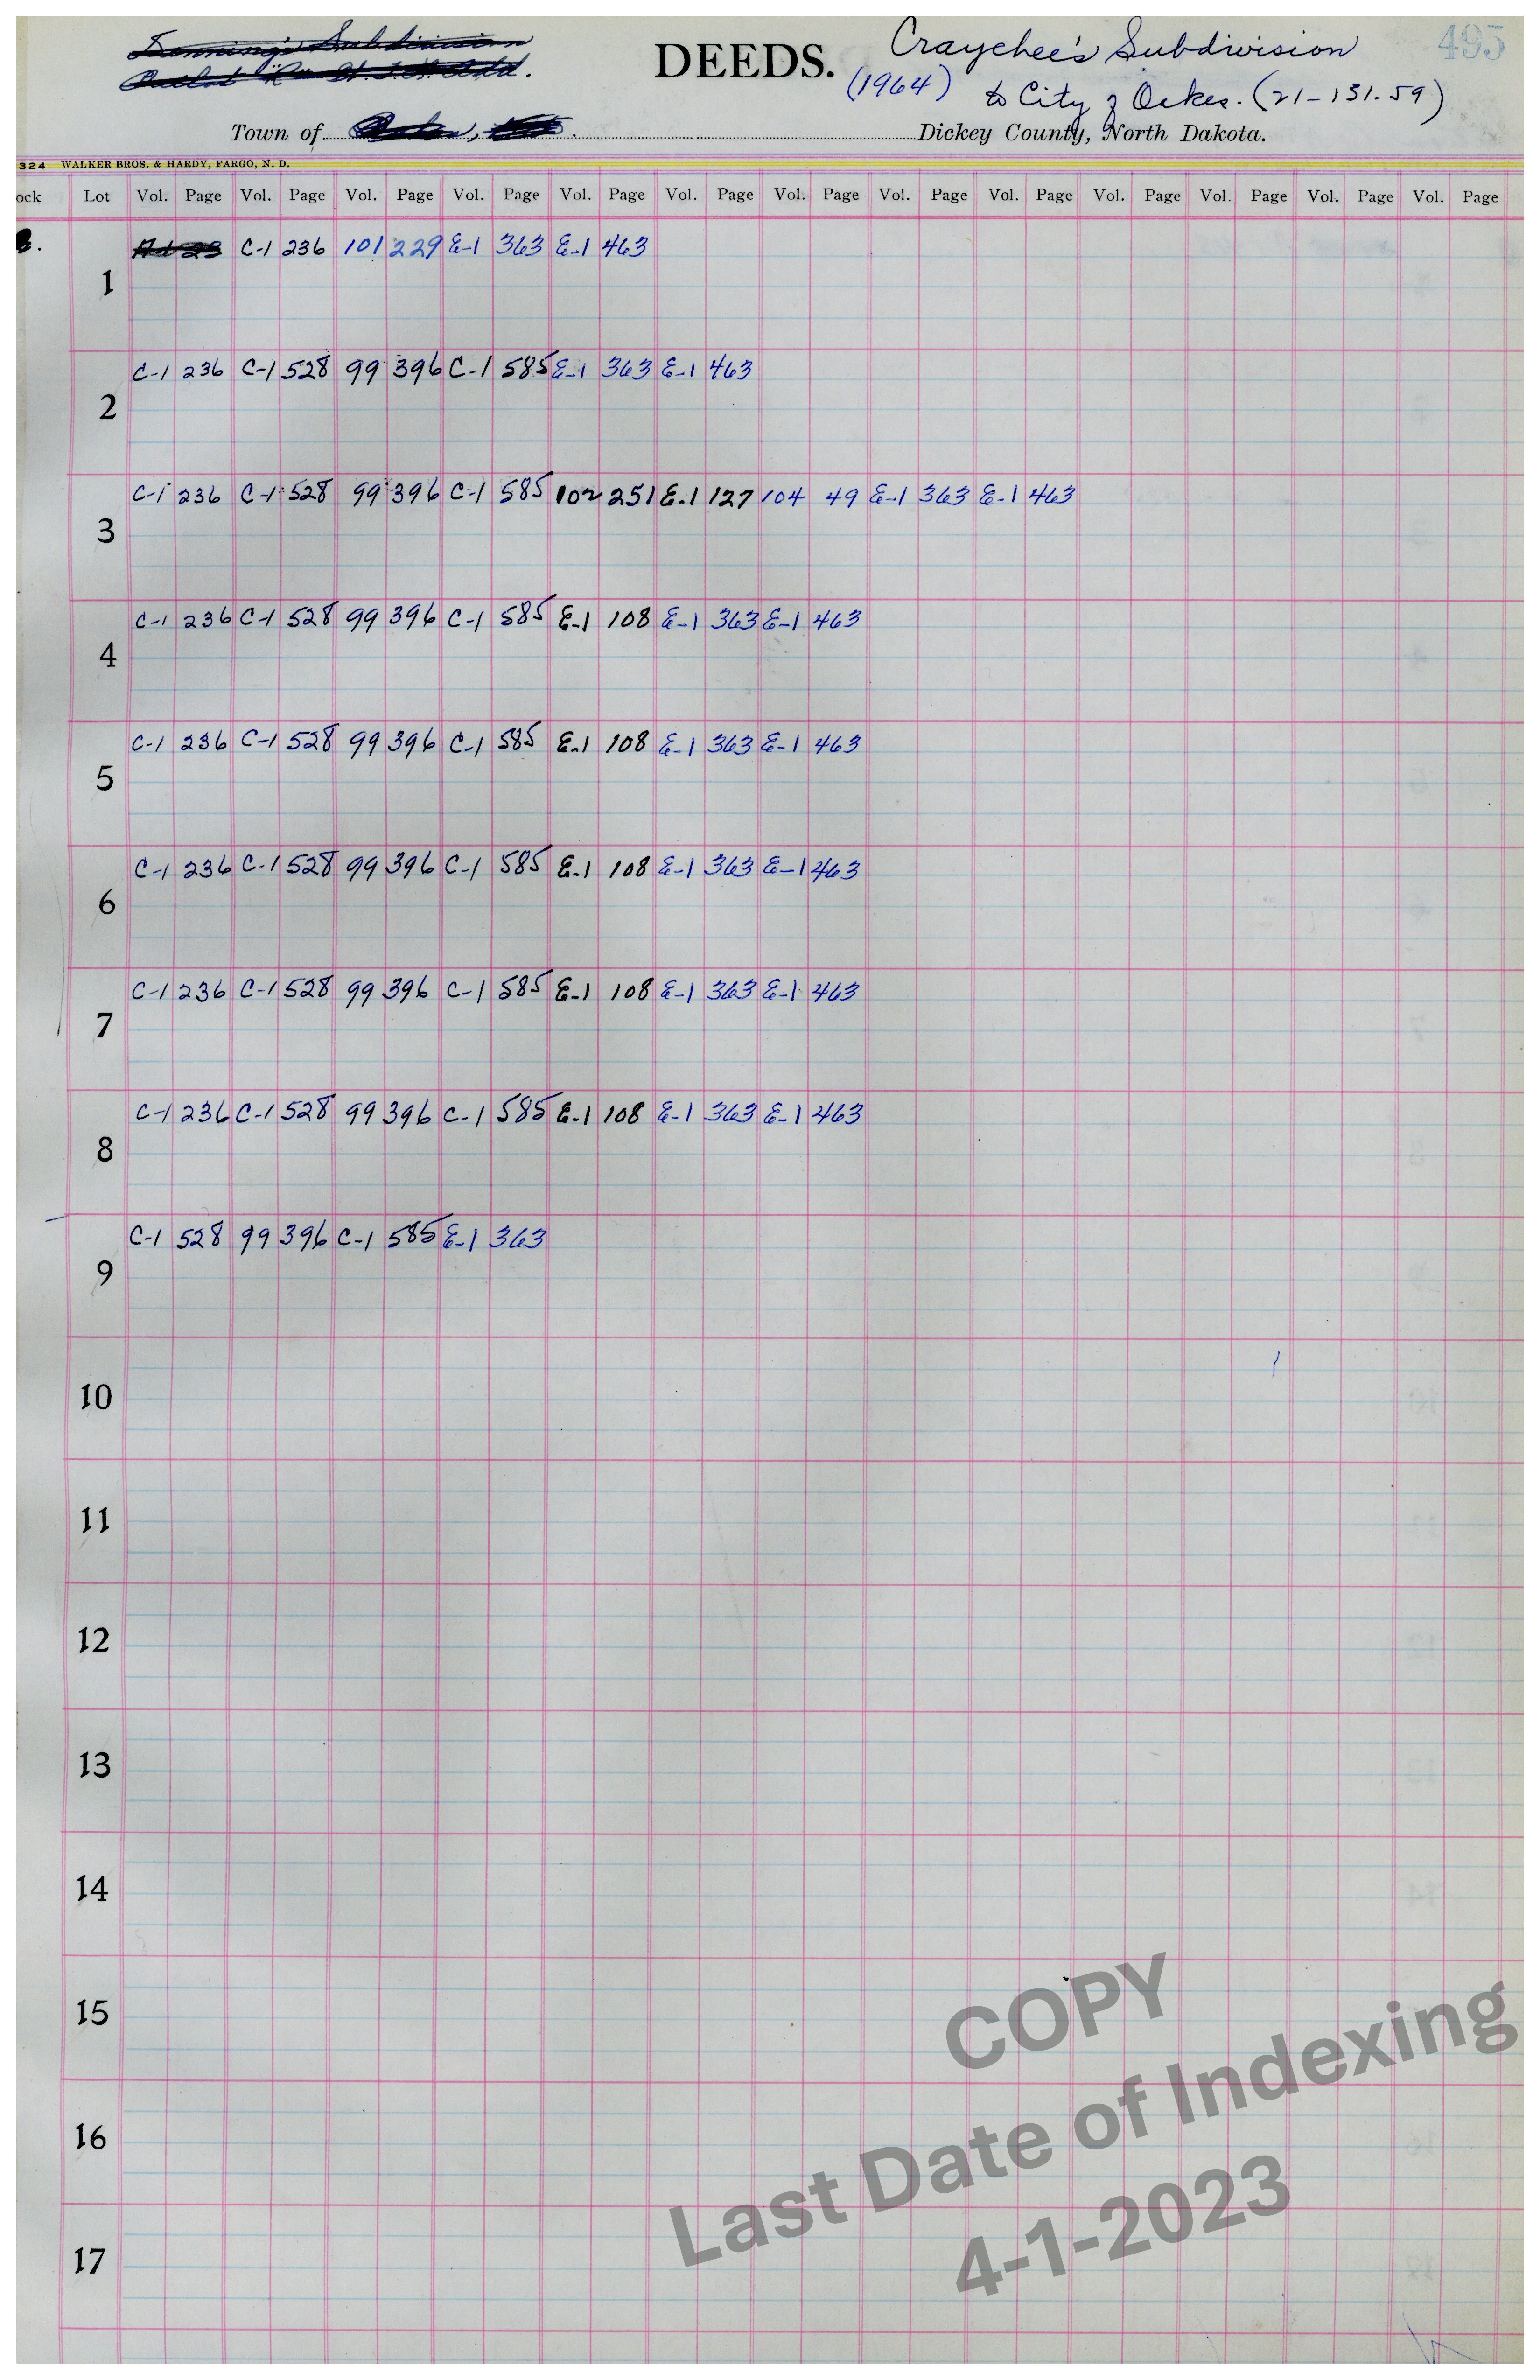 Subdivision
DEEDS.
Craychee's Subdivision
495
(1964) to City of Oakes. (21-131-59)
Town of Dickey County, North Dakota.
324 WALKER BROS. & HARDY, FARGO, N. D.
ock Lot Vol. Page Vol. Page Vol. Page Vol. Page Vol. Page Vol. Page Vol. Page Vol. Page Vol. Page Vol. Page Vol. Page Vol. Page Vol. Page
C-1 236 101 229 E-1 363 E-1 463
1
C-1 236 C-1 528 99 396 C-1 585 E-1 363 E-1 463
2
C-1 236 C-1 528 99 396 C-1 585 102 251 E-1 127 104 49 E-1 363 E-1 463
3
C-1 236 C-1 528 99 396 C-1 585 E-1 108 E-1 363 E-1 463
4
C-1 236 C-1 528 99 396 C-1 585 E-1 108 E-1 363 E-1 463
5
C-1 236 C-1 528 99 396 C-1 585 E-1 108 E-1 363 E-1 463
6
C-1 236 C-1 528 99 396 C-1 585 E-1 108 E-1 363 E-1 463
7
C-1 236 C-1 528 99 396 C-1 585 E-1 108 E-1 363 E-1 463
8
C-1 528 99 396 C-1 585 E-1 363
9
10
11
12
13
14
15
16
17
COPY
Last Date of Indexing
4-1-2023